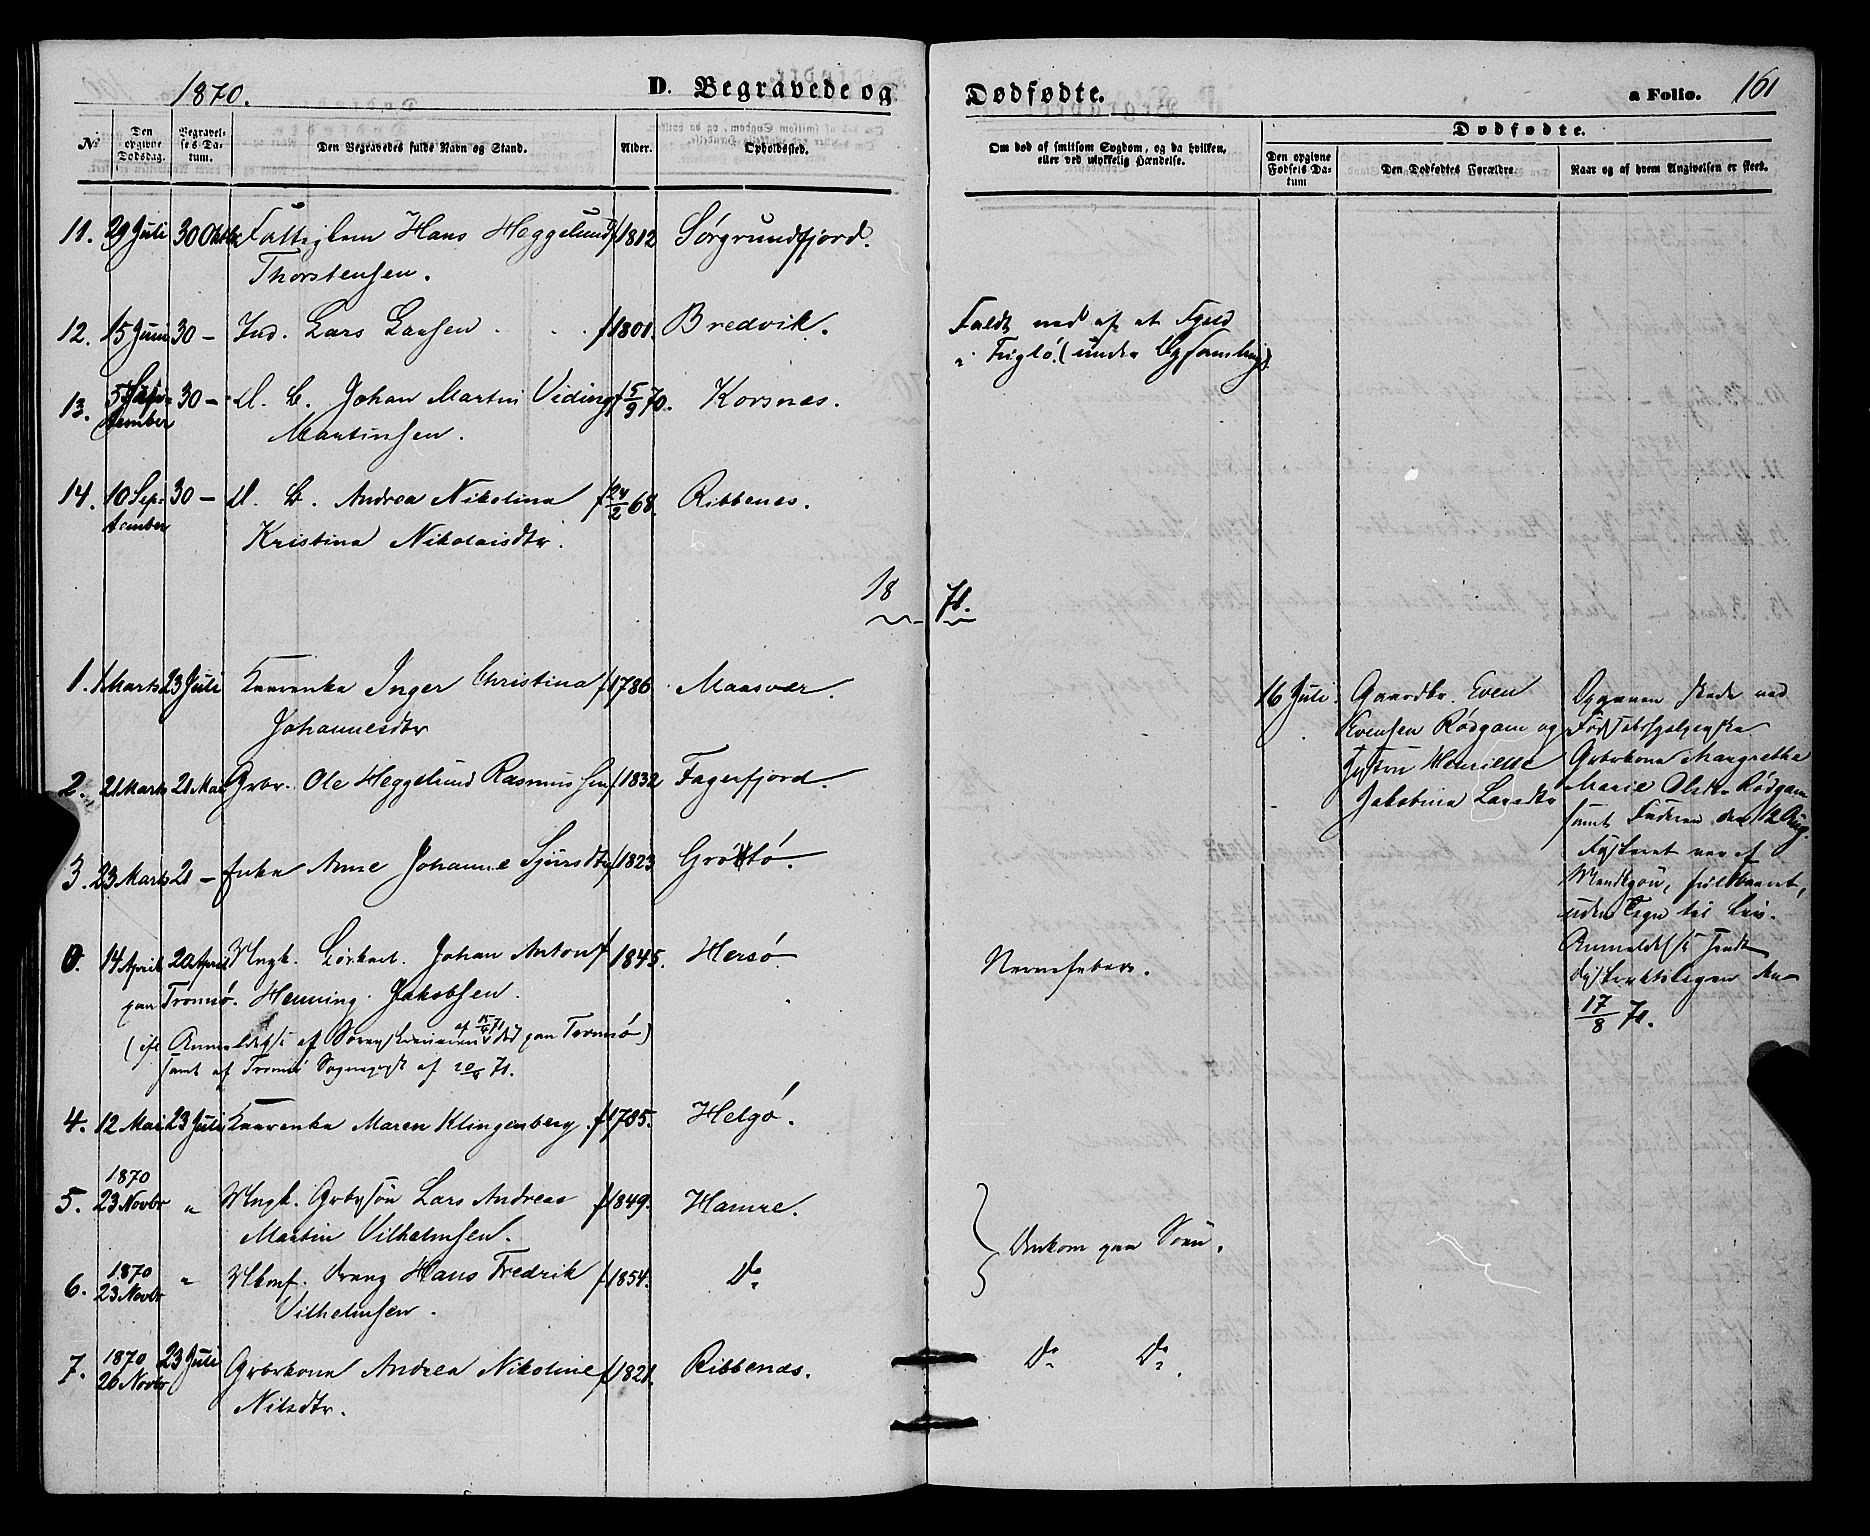 1870.
D. Begravede og
Dødfødte.
a Folio. 161
No
Den opgivne Dødsdag.
Begravelses Datum.
Den Begravedes fulde Navn og Stand.
Alder.
Opholdssted.
Om død af smitsom Sygdom, og da hvilken, eller ved ulykkelig Hændelse.
Dødfødte.
Den opgivne Fødsels Datum
Den Dødfødtes Forældre.
Naar og af hvem Angivelsen er skeet.
11. 29 Juli 30 Oktbr Fattiglem Hans Heggelund f 1812 Sørgrundfjord.
Thorstensen.
12. 15 Juni 30 — Ind. Lars Larsen f 1801. Bredvik. Faldt ned af et Fjeld
i Fuglø. (under
13. 5 September 30 — d. B. Johan Martin Viding f 5/9 70. Korsnes.
Martinsen.
14. 10 September 30 — d. B. Andrea Nikolina f 24/2 68. Ribbenes.
Kristina Nikolaisdtr.
18 71.
1. 1 Marts 23 Juli Kaarenke Inger Christina f 1786 Maasvær.
Johannesdtr
2. 21 Marts 21 Mai Grbr. Ole Heggelund Rasmussen f 1832 Fagerfjord.
3. 23 Marts 21 — Enke Anne Johanne Sjursdtr f 1823 Grøttø.
0. 14 April 20 April Ungk. Johan Anton f 1845. Hersø Nervefeber.
paa Tromsø. Henning Jakobsen.
af 15/4 71 død paa Tromsø)
samt af Tromsø af 20/4 71.
4. 12 Mai 23 Juli Kaarenke Maren Klingenberg. f 1785. Helgø.
5. 1870 23 Novbr " Ungk. Grbrsøn Lars Andreas f 1849. Hamre.
Martin Vilhelmsen.
Omkom paa Søen.
6. 1870 23 Novbr " Ukonf. Dreng Hans Fredrik f 1854. Do
Vilhelmsen.
7. 1870 26 Novbr 23 Juli Grbrkone Andrea Nikoline f 1821. Ribbenæs. Do Do.
Nilsdtr.
16 Juli. Gaardbr. Even
Evensen Rødgam og
Hustru Henriette
Jakobina Larsdtr
Opgaven skede ved
Grbrkone Margrethe
Marie Olsdtr Rødgam
samt Faderen den 12 Aug.
Fosteret var af
Mandkjøn, fuldbaaret,
uden Tegn til Liv.
Anmeldelse sendt
Distriktslægen den
17/8 71.